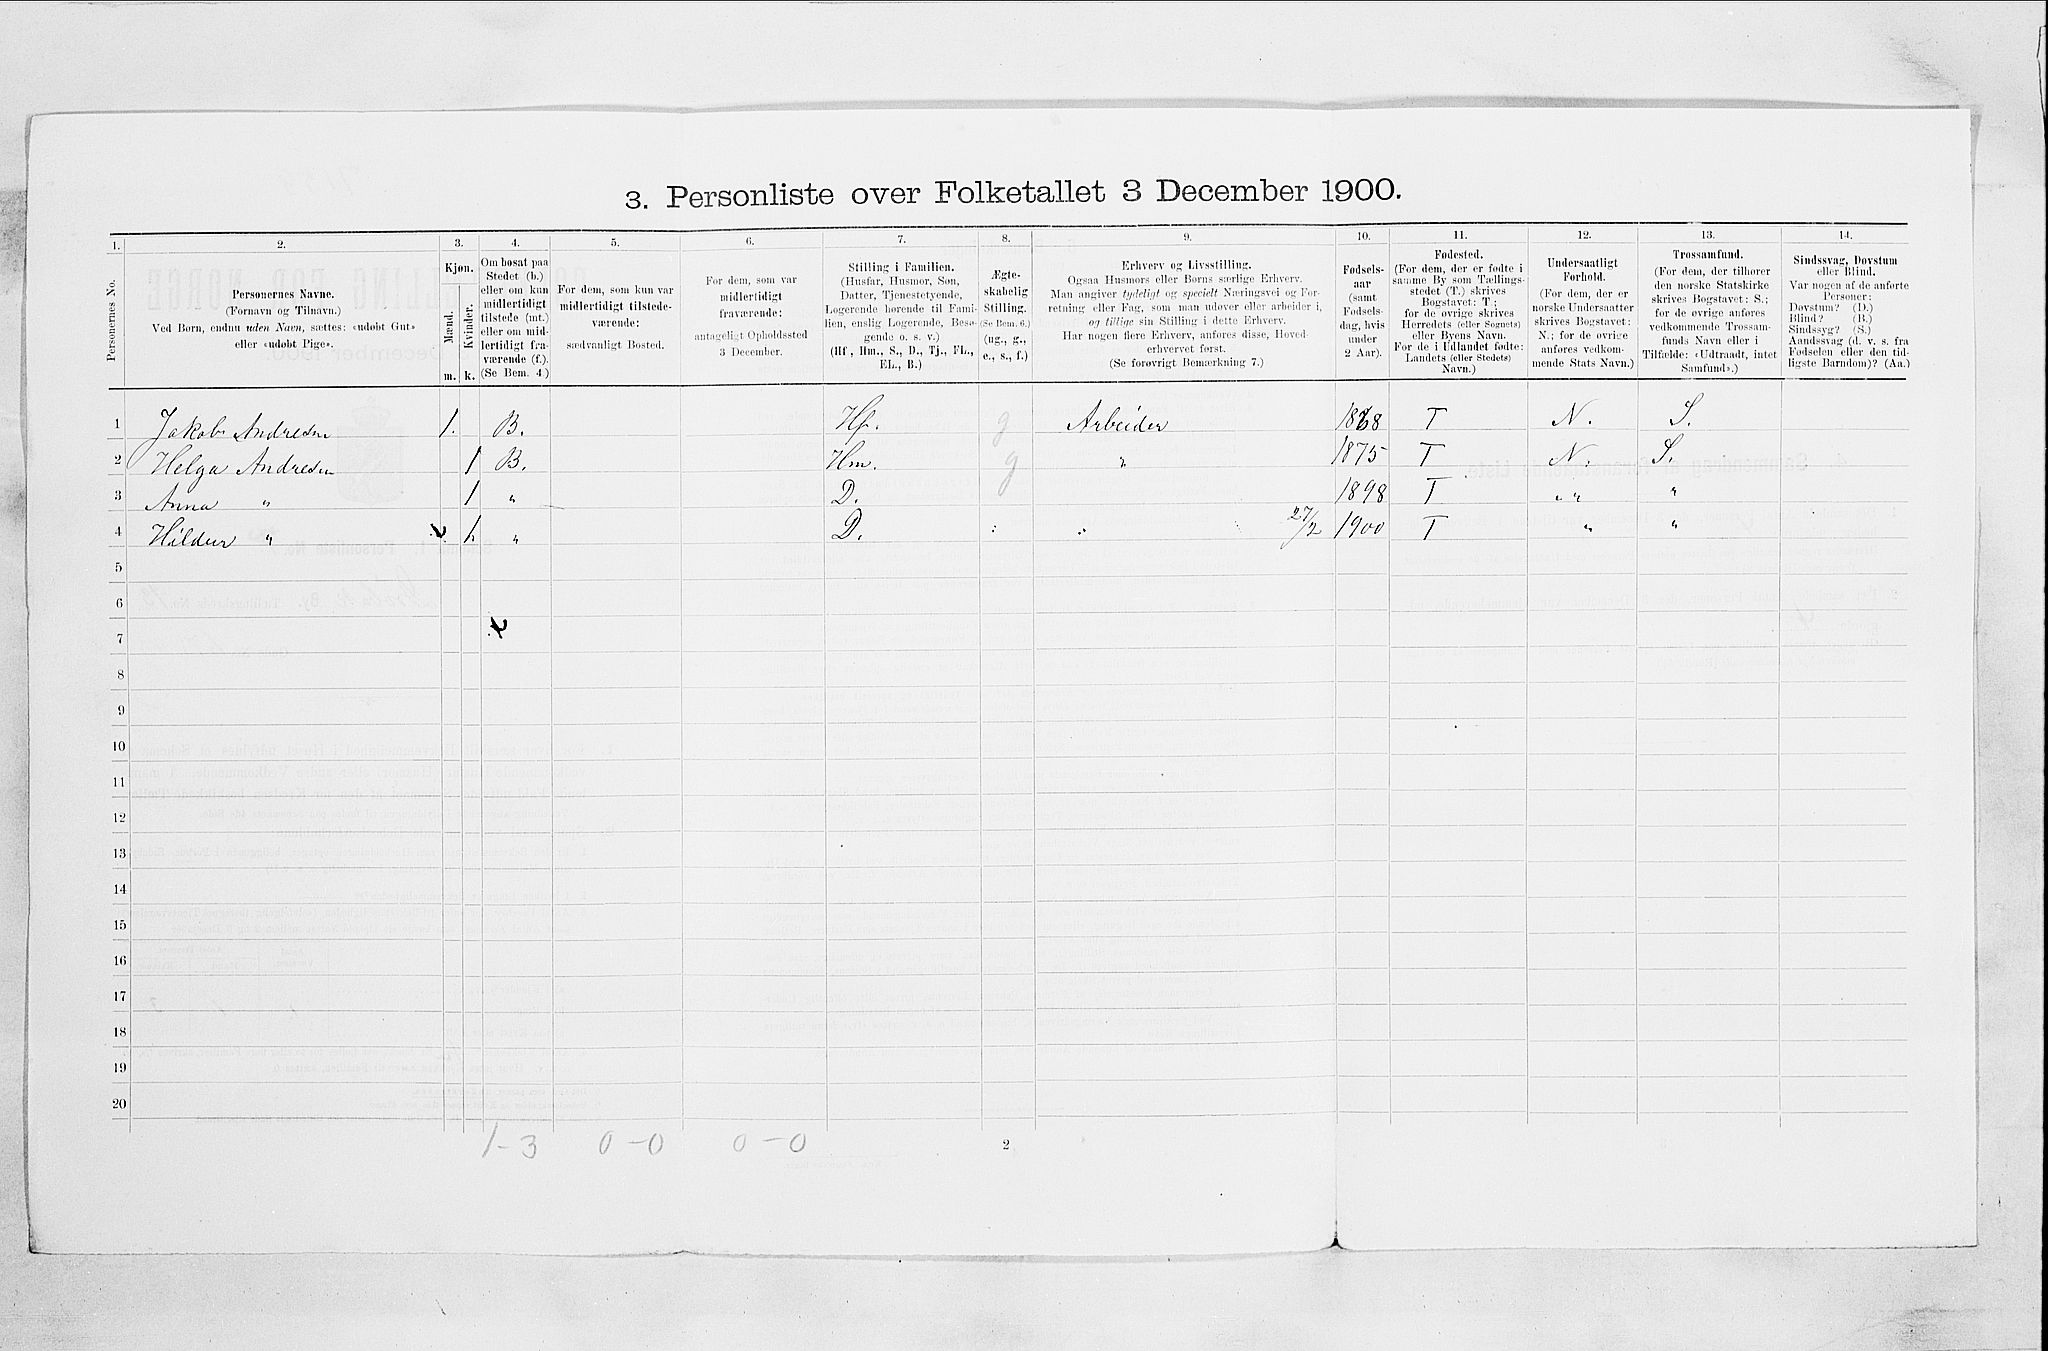 3. Personliste over Folketallet 3 December 1900.
1. 2. 3. 4. 5. 6. 7. 8. 9. 10. 11. 12. 13. 14.
Personernes No.
Personernes Navne.
(Fornavn og Tilnavn.)
Ved Børn, endnu uden Navn, sættes: «udøbt Gut»
eller «udøbt Pige».
Kjøn.
Mænd.
Kvinder.
m. k.
Om bosat paa
Stedet (b.)
eller om kun
midlertidigt
tilstede (mt.)
eller om mid-
lertidigt fra-
værende (f.)
(Se Bem. 4.)
For dem, som kun var
midlertidigt tilstede-
værende:
sædvanligt Bosted.
For dem, som var
midlertidigt
fraværende:
antageligt Opholdssted
3 December.
Stilling i Familien.
(Husfar, Husmor, Søn,
Datter, Tjenestetyende,
Logerende hørende til Fami-
lien, enslig Logerende, Besø-
gende o. s. v.)
(Hf., Hm., S., D., Tj., FL.,
EL., B.)
Ægte-
skabelig
Stilling.
(Se Bem. 6.)
(ug., g.,
e., s., f.)
Erhverv og Livsstilling.
Ogsaa Husmors eller Børns særlige Erhverv.
Man angiver tydeligt og specielt Næringsvei og For-
retning eller Fag, som man udøver eller arbeider i,
og tillige sin Stilling i dette Erhverv.
Har nogen flere Erhverv, anføres disse, Hoved-
erhvervet først.
(Se forøvrigt Bemærkning 7.)
Fødsels-
aar
(samt
Fødsels-
dag, hvis
under
2 Aar).
Fødested.
(For dem, der er fødte i
samme By som Tællings-
stedet (T.) skrives
Bogstavet: T;
for de øvrige skrives
Herredets (eller Sognets)
eller Byens Navn.
For de i Udlandet fødte:
Landets (eller Stedets)
Navn.)
Undersaatligt
Forhold.
(For dem, der er
norske Undersaatter
skrives Bogstavet:
N.; for de øvrige
anføres vedkom-
mende Stats Navn.)
Trossamfund.
(For dem, der tilhører
den norske Statskirke
skrives Bogstavet: S.;
for de øvrige anføres
vedkommende Trossam-
funds Navn eller i
Tilfælde: «Udtraadt, intet
Samfund».)
Sindssvag, Døvstum
eller Blind.
Var nogen af de anførte
Personer:
Døvstum? (D.)
Blind? (B.)
Sindssyg? (S.)
Aandssvag (d. v. s. fra
Fødselen eller den tid-
ligste Barndom)? (Aa.)
1 Jakob Andresen 1. B. Hf. g Arbeider 1868 T N. S.
2 Helga Andresen 1 B. Hm. g " 1875 T N. S.
3 Anna " 1 " D. 1898 T " " "
4 Hildur " 1. " D. 27/2 1900 T " "
5
6
7
8
9
10
11
12
13
14
15
16
17
18
19
20
1-3 0-0 0-0 2